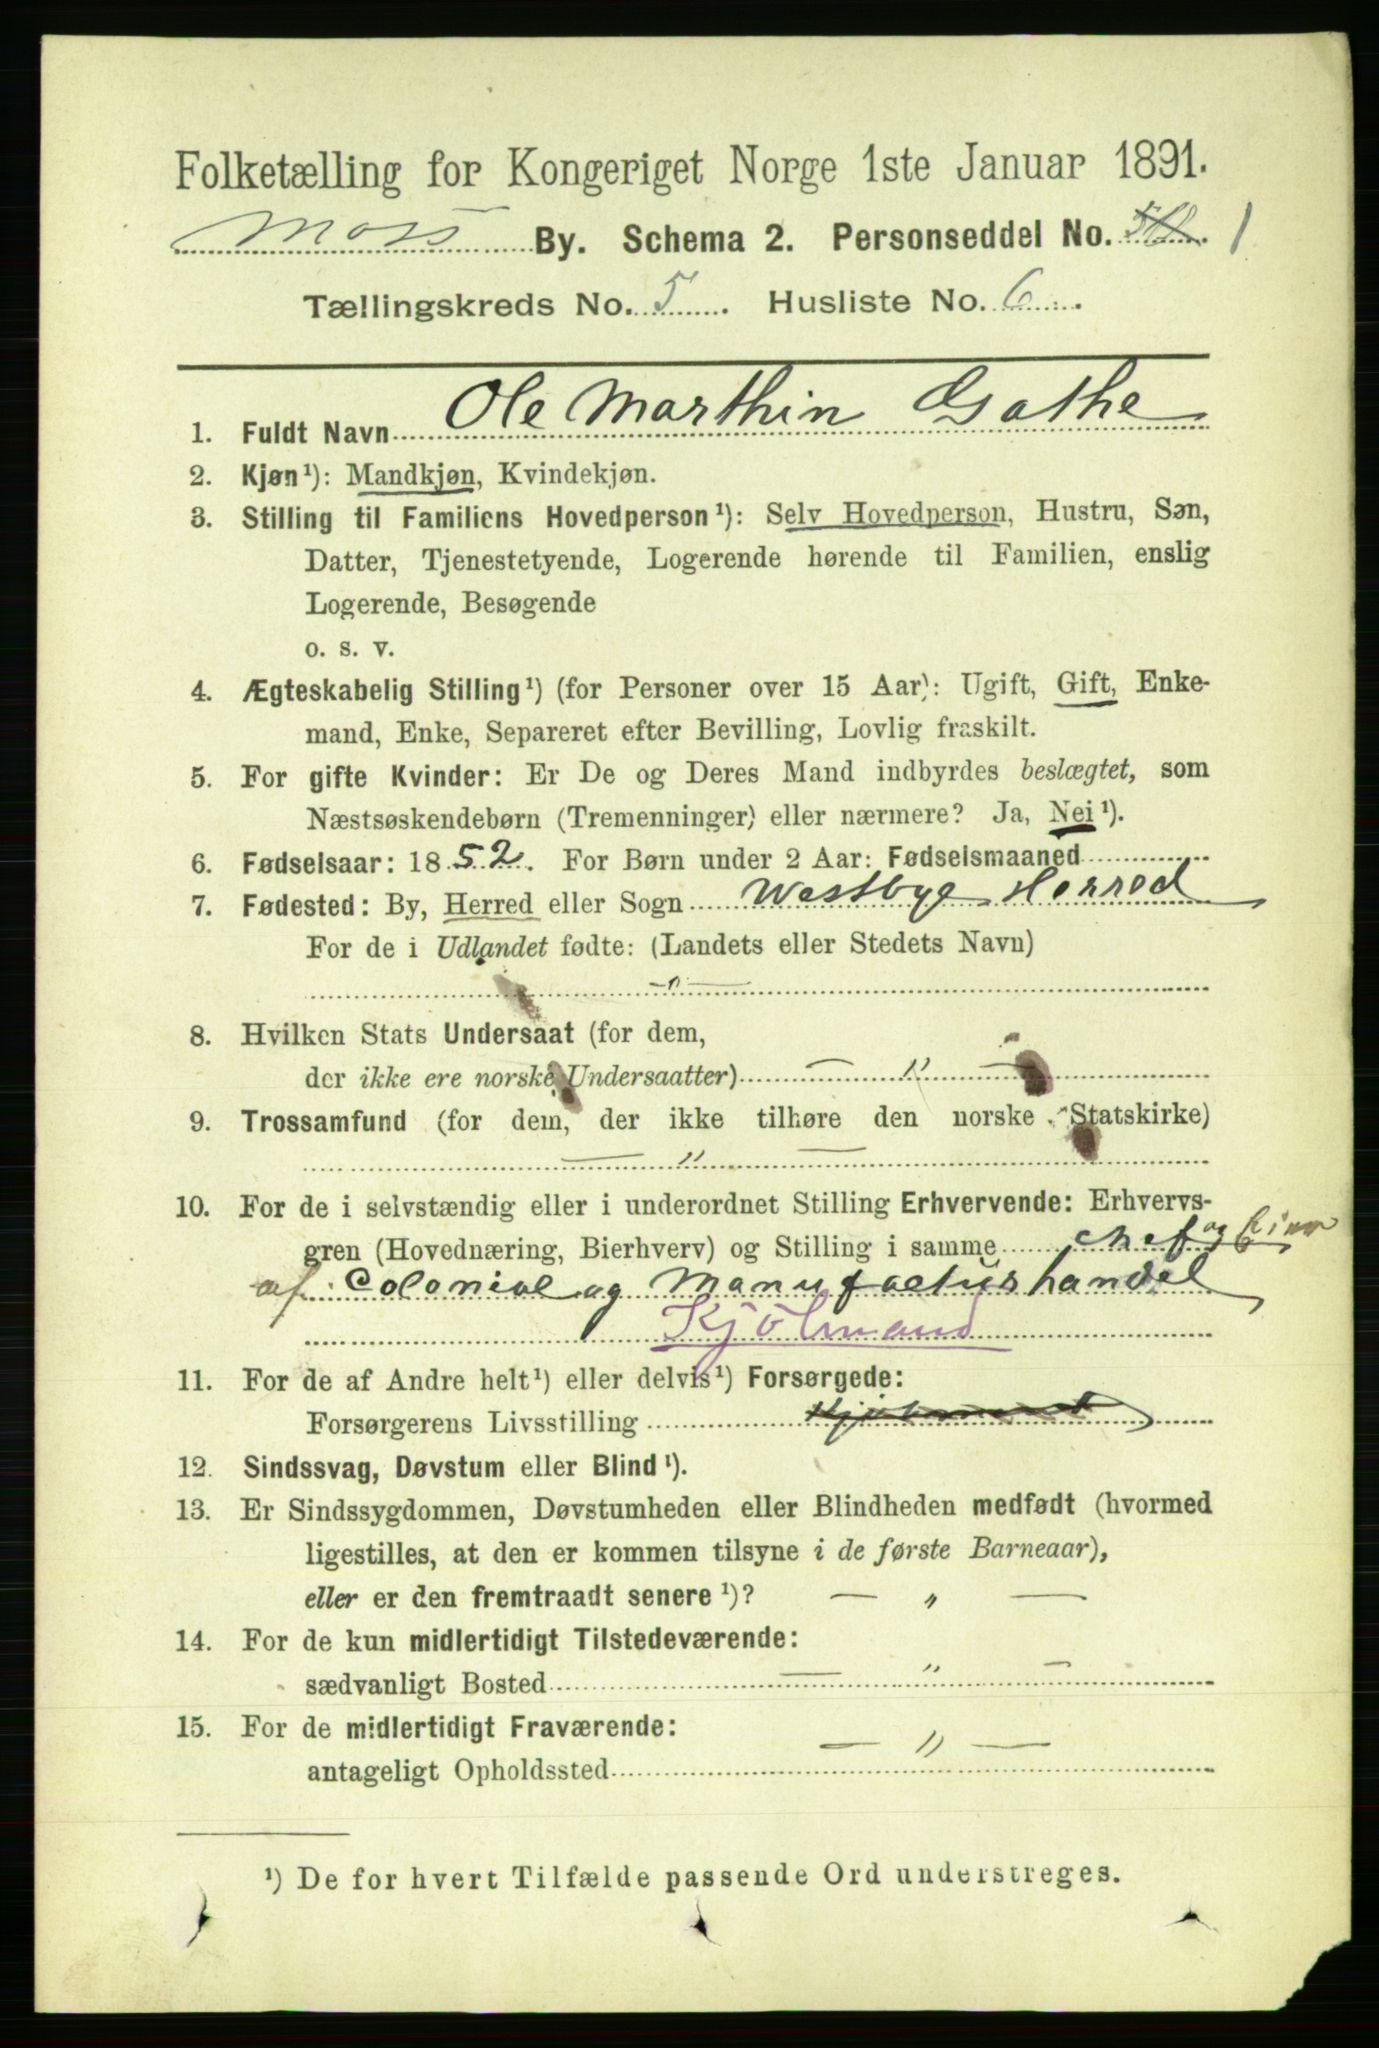 Folketælling for Kongeriget Norge 1ste Januar 1891.
Moss By. Schema 2. Personseddel No. 1
Tællingskreds No. 5. Husliste No. 6.
1. Fuldt Navn Ole Marthin Gathe
2. Kjøn¹): Mandkjøn, Kvindekjøn.
3. Stilling til Familiens Hovedperson¹): Selv Hovedperson, Hustru, Søn,
Datter, Tjenestetyende, Logerende hørende til Familien, enslig
Logerende, Besøgende
o. s. v.
4. Ægteskabelig Stilling¹) (for Personer over 15 Aar): Ugift, Gift, Enke-
mand, Enke, Separeret efter Bevilling, Lovlig fraskilt.
5. For gifte Kvinder: Er De og Deres Mand indbyrdes beslægtet, som
Næstsøskendebørn (Tremenninger) eller nærmere? Ja, Nei¹).
6. Fødselsaar: 1852. For Børn under 2 Aar: Fødselsmaaned
7. Fødested: By, Herred eller Sogn Westbye Herred
For de i Udlandet fødte: (Landets eller Stedets Navn)
— " —
8. Hvilken Stats Undersaat (for dem,
der ikke ere norske Undersaatter) — " —
9. Trossamfund (for dem, der ikke tilhøre den norske Statskirke)
— " —
10. For de i selvstændig eller i underordnet Stilling Erhvervende: Erhvervs-
gren (Hovednæring, Bierhverv) og Stilling i samme chef og
af Colonial og Manufacturhandel
Kjölmand
11. For de af Andre helt¹) eller delvis¹) Forsørgede:
Forsørgerens Livsstilling Kjøbmand
12. Sindssvag, Døvstum eller Blind¹).
13. Er Sindssygdommen, Døvstumheden eller Blindheden medfødt (hvormed
ligestilles, at den er kommen tilsyne i de første Barneaar),
eller er den fremtraadt senere¹)? — " —
14. For de kun midlertidigt Tilstedeværende:
sædvanligt Bosted — " —
15. For de midlertidigt Fraværende:
antageligt Opholdssted — " —
¹) De for hvert Tilfælde passende Ord understreges.